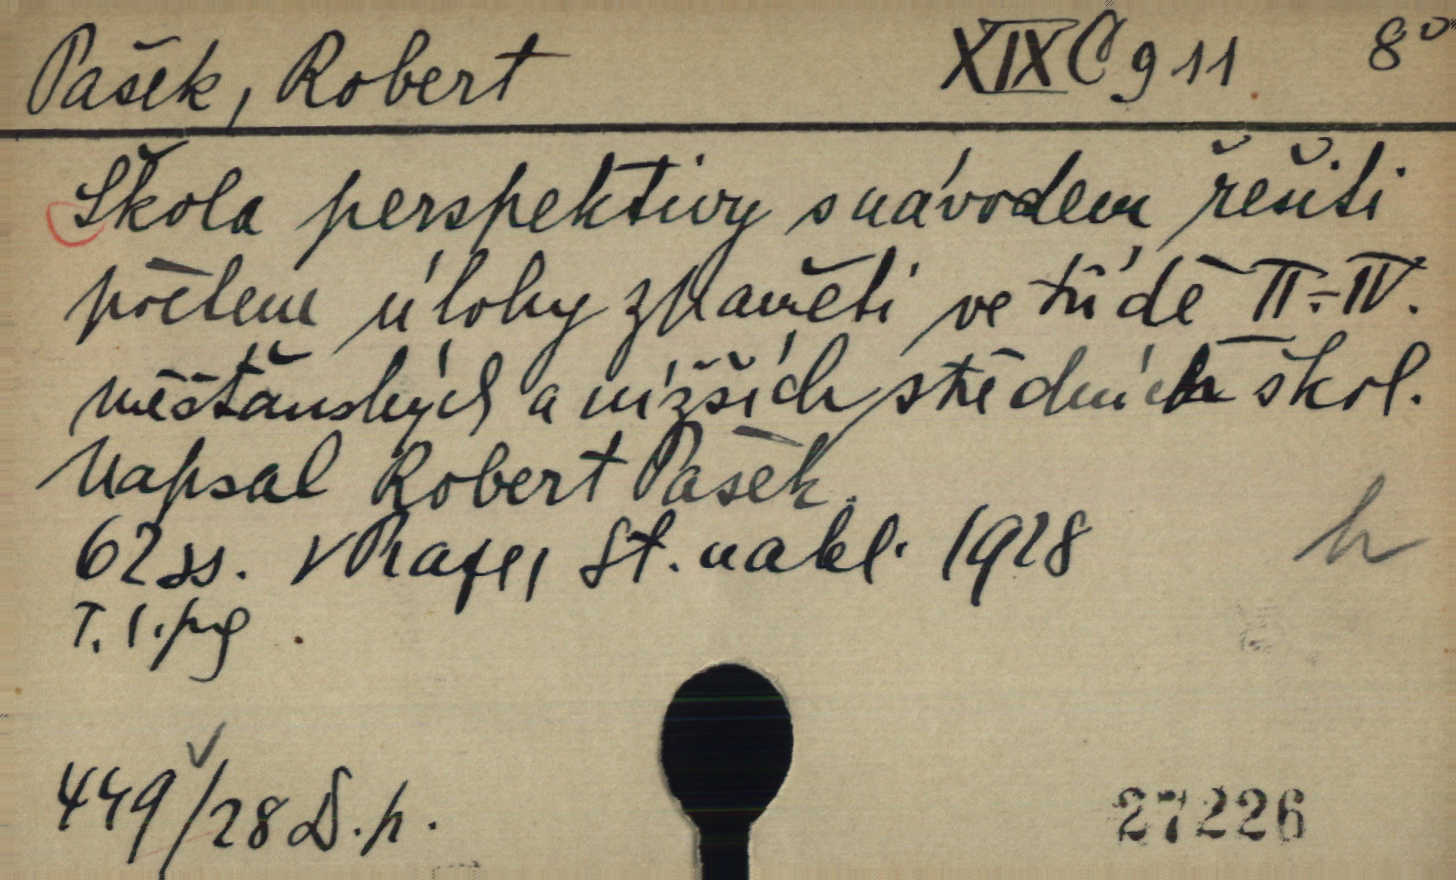 Pašek, Robert XIX C 911 8°
Škola perspektivy s návodem řešiti
počtem úlohy z paměti ve třídě II.-IV.
měšťanských a nižších středních škol.
Napsal Robert Pašek.
62 ss. V Praze, St. nakl. 1928
h
T. I. pg
449/28 D.p.
27226